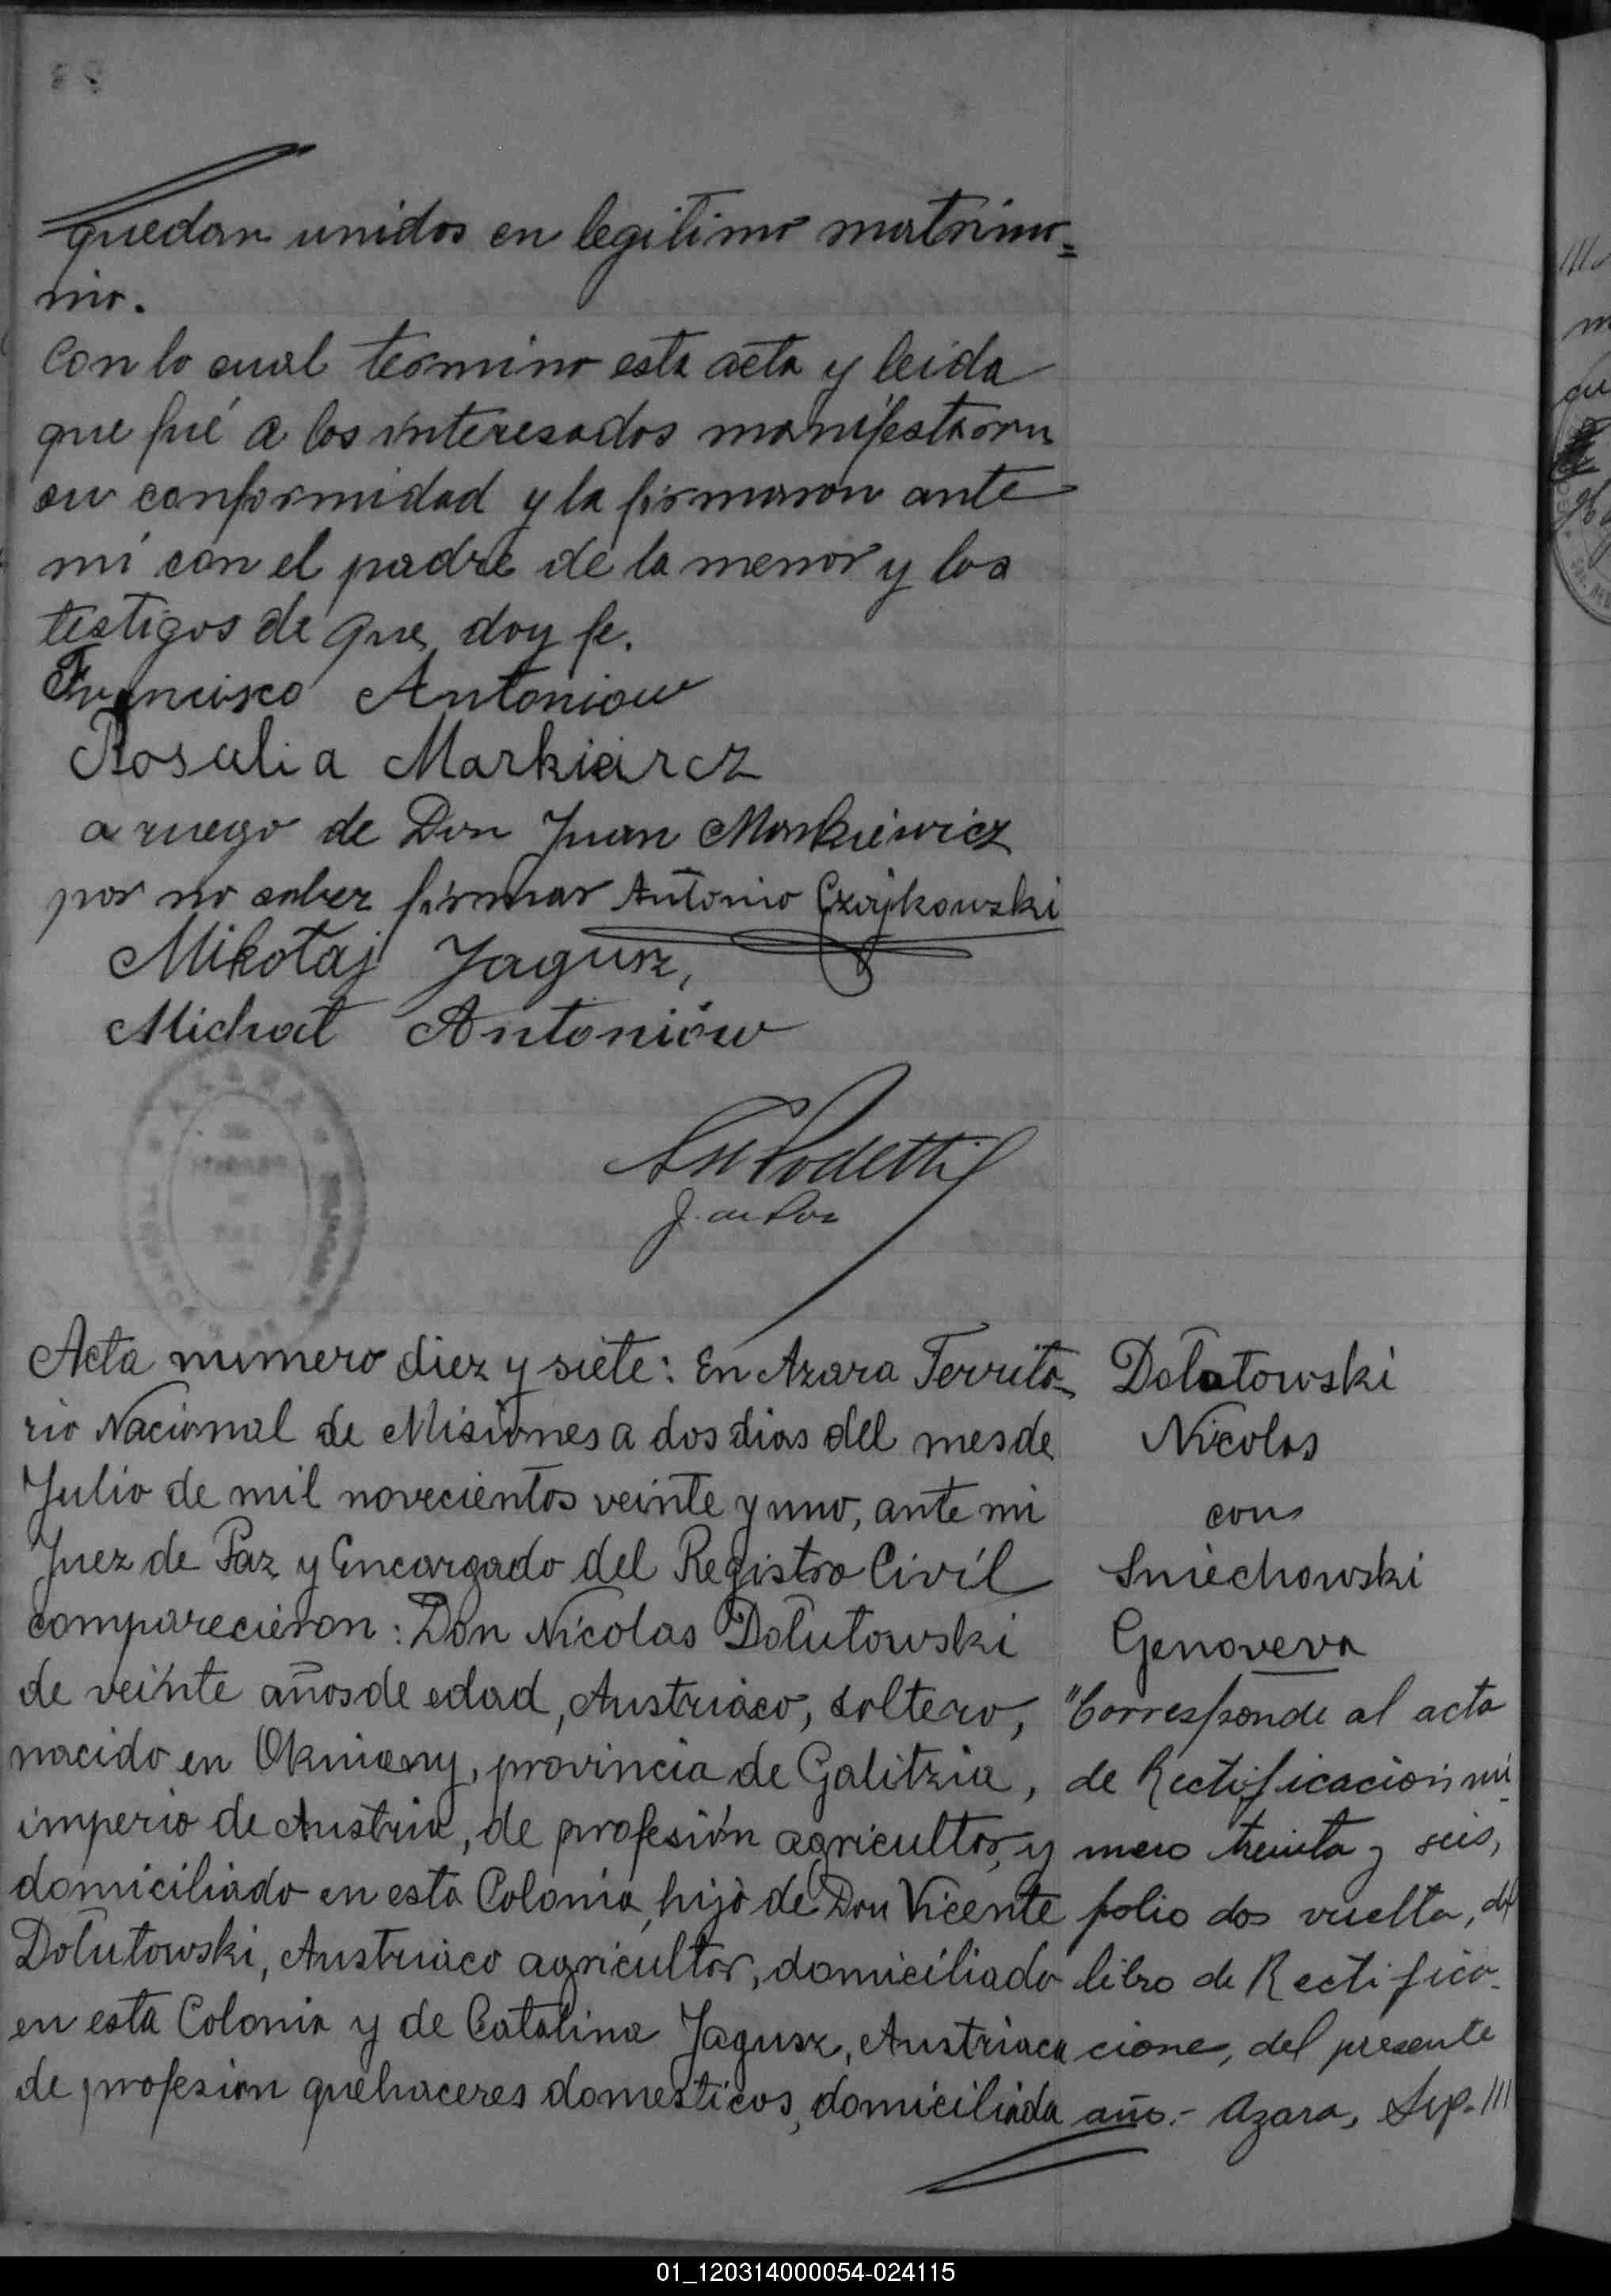 quedan unidos en legitimo matrimo=
nio.
Con lo cual termino esta acta y leida
que fué a los interesados manifestaron
su conformidad y la firmaron ante
mi con el padre de la menor y los
testigos de que doy fe.
Francisco Antoniow
Rosalia Markiewicz
a ruego de Don Juan Markiewicz
por no saber firmar Antonio Czajkowski
Mikołaj Jagusz,
Michał Antoniów
AZARA
J. de Paz
Acta numero diez y siete: En Azara Territo-
rio Nacional de Misiones a dos dias del mes de
Julio de mil novecientos veinte y uno, ante mi
Juez de Paz y Encargado del Registro Civil
comparecieron: Don Nicolas Dołutowski
de veinte años de edad, Austriaco, soltero,
nacido en Okniany, provincia de Galitzia,
imperio de Austria, de profesión agricultor, y
domiciliado en esta Colonia, hijo de Don Vicente
Dołutowski, Austriaco agricultor, domiciliado
en esta Colonia y de Catalina Jagusz, Austriaca
de profesion quehaceres domesticos, domiciliada
Dołutowski
Nicolas
con
Sniechowski
Genoveva
"Corresponde al acta
de Rectificación nú-
mero treinta y seis,
folio dos vuelta, del
libro de Rectifica-
ciones, del presente
año.- Azara, Sep. ///
01_120314000054-024115